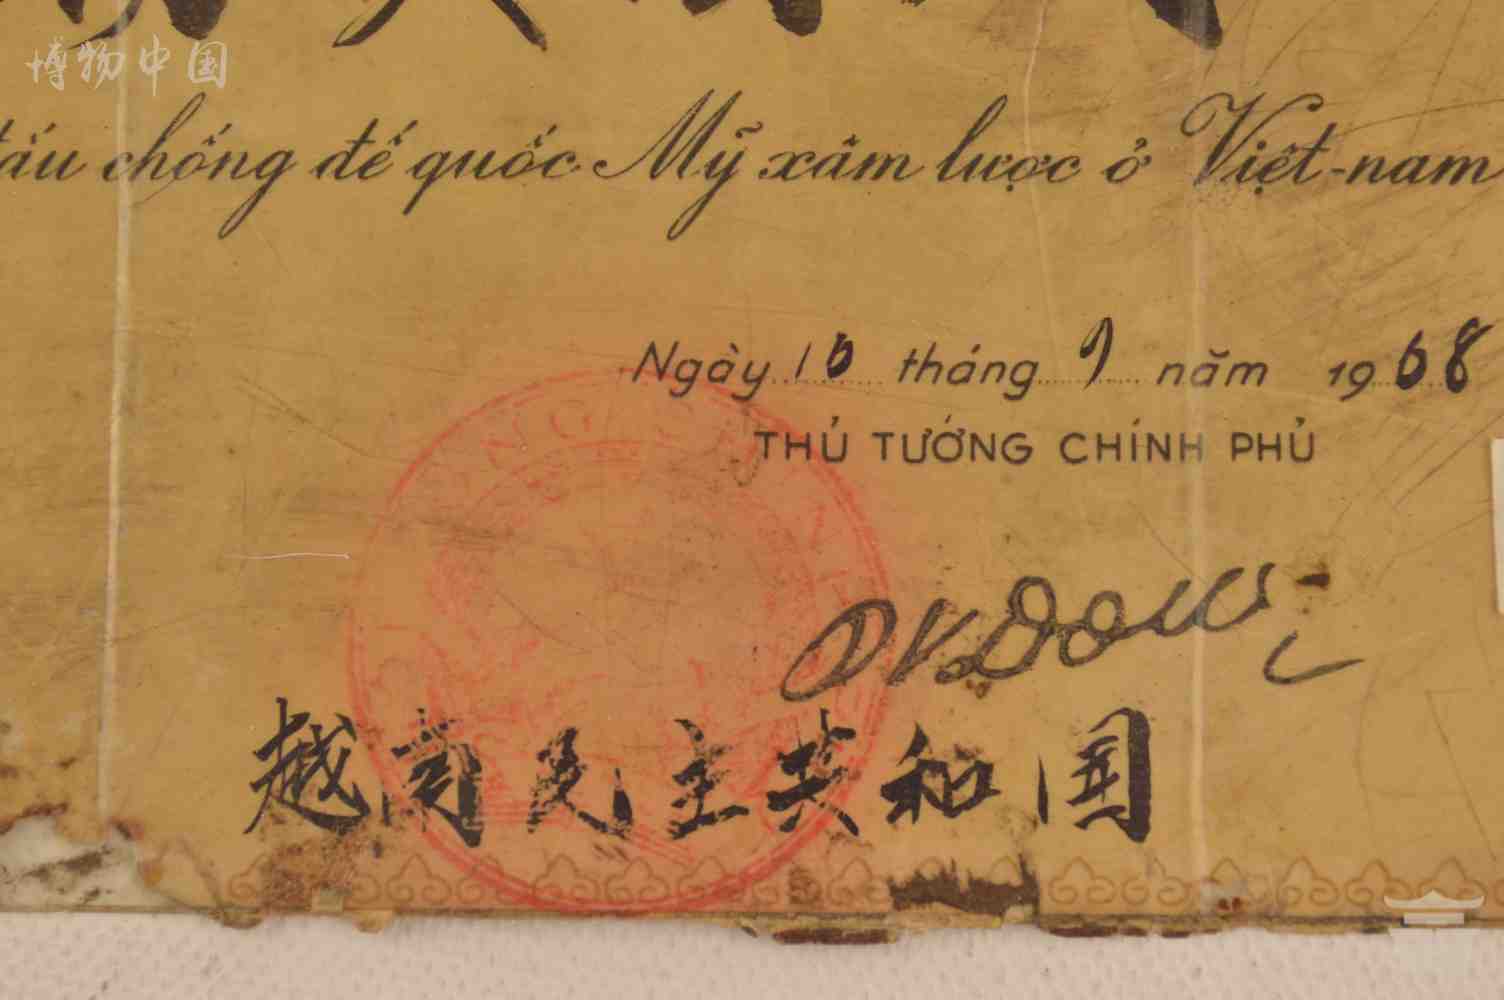 博物中国
đấu chống đế quốc Mỹ xâm lược ở Việt-nam
Ngày 10 tháng 9 năm 1968
THỦ TƯỚNG CHÍNH PHỦ
越南民主共和国